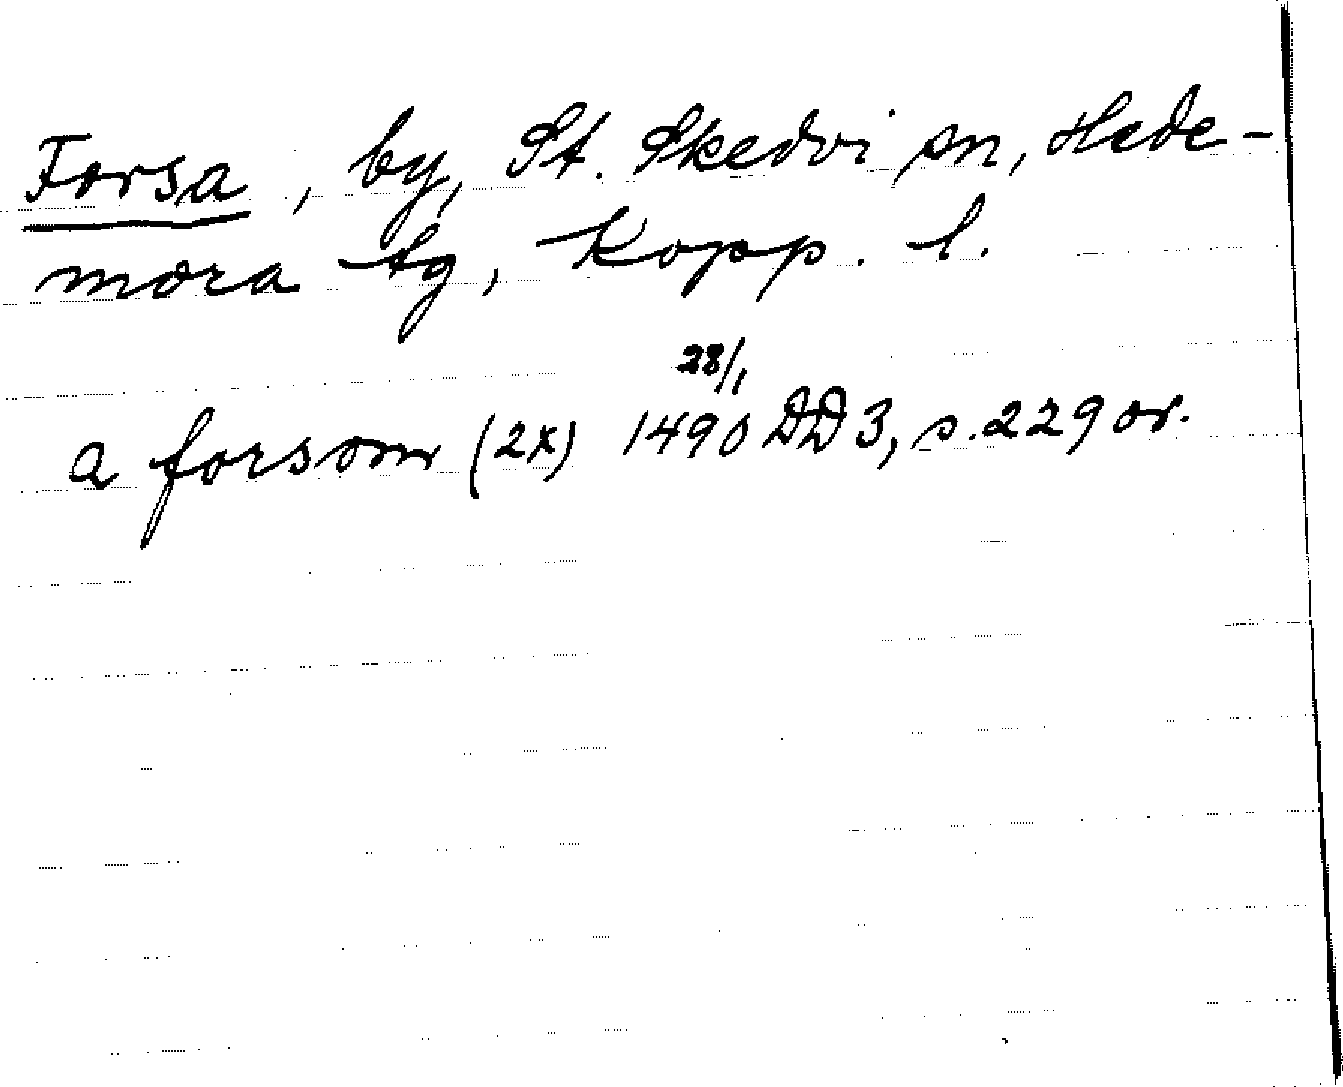 Forsa, by, St. Skedvi sn, Hede-
mora tg, Kopp. l.
28/1
a forsom (2x) 1490 DD 3, s. 229 or.